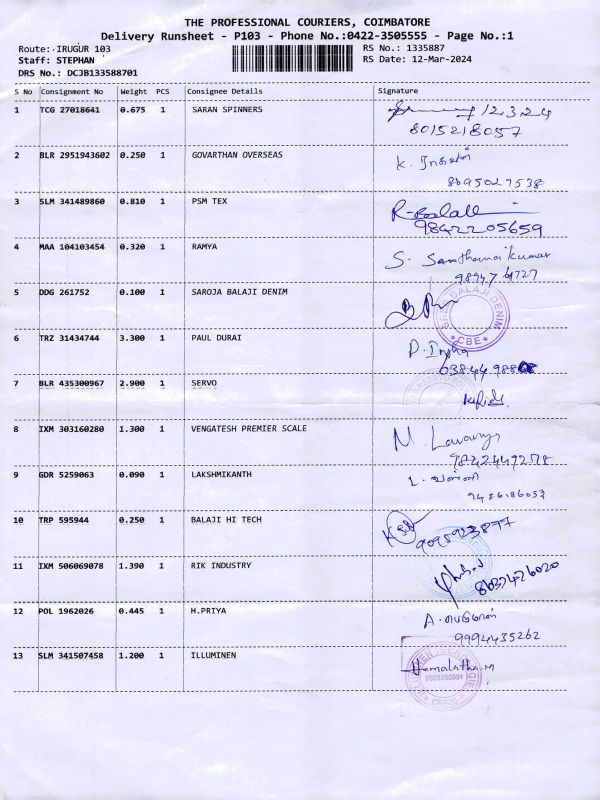 THE PROFESSIONAL COURIERS, COIMBATORE
Delivery Runsheet - P103 - Phone No.:0422-3505555 - Page No.:1
Route: IRUGUR 103 RS No.: 1335887
Staff: STEPHAN RS Date: 12-Mar-2024
DRS No.: DCJB133588701
S No Consignment No Weight PCS Consignee Details Signature
1 TCG 27018641 0.675 1 SARAN SPINNERS 12.3.24
8015218057
2 BLR 2951943602 0.250 1 GOVARTHAN OVERSEAS K.
8695027538
3 SLM 341489860 0.810 1 PSM TEX
9842205659
4 MAA 104103454 0.320 1 RAMYA S.
5 DDG 261752 0.100 1 SAROJA BALAJI DENIM
SHREE BALAJI DENIM
* CBE *
6 TRZ 31434744 3.300 1 PAUL DURAI
7 BLR 435300967 2.900 1 SERVO
8 IXM 303160280 1.300 1 VENGATESH PREMIER SCALE M.
9842449278
9 GDR 5259063 0.090 1 LAKSHMIKANTH L.
9486186053
10 TRP 595944 0.250 1 BALAJI HI TECH
9095923877
11 IXM 506069078 1.390 1 RIK INDUSTRY
8637426020
12 POL 1962026 0.445 1 H.PRIYA A.
9994435262
13 SLM 341507458 1.200 1 ILLUMINEN Hemalatha.M